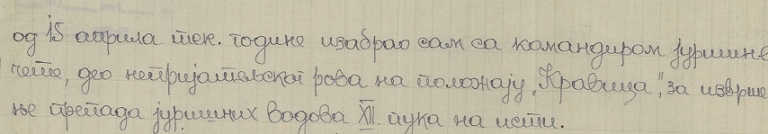 од 15 априла тек. године изабрао сам са командиром јуришне
чете, део непријатељског рова на положају „Кравица", за изврше
ње препада јуришних водова XII. пука на исти.